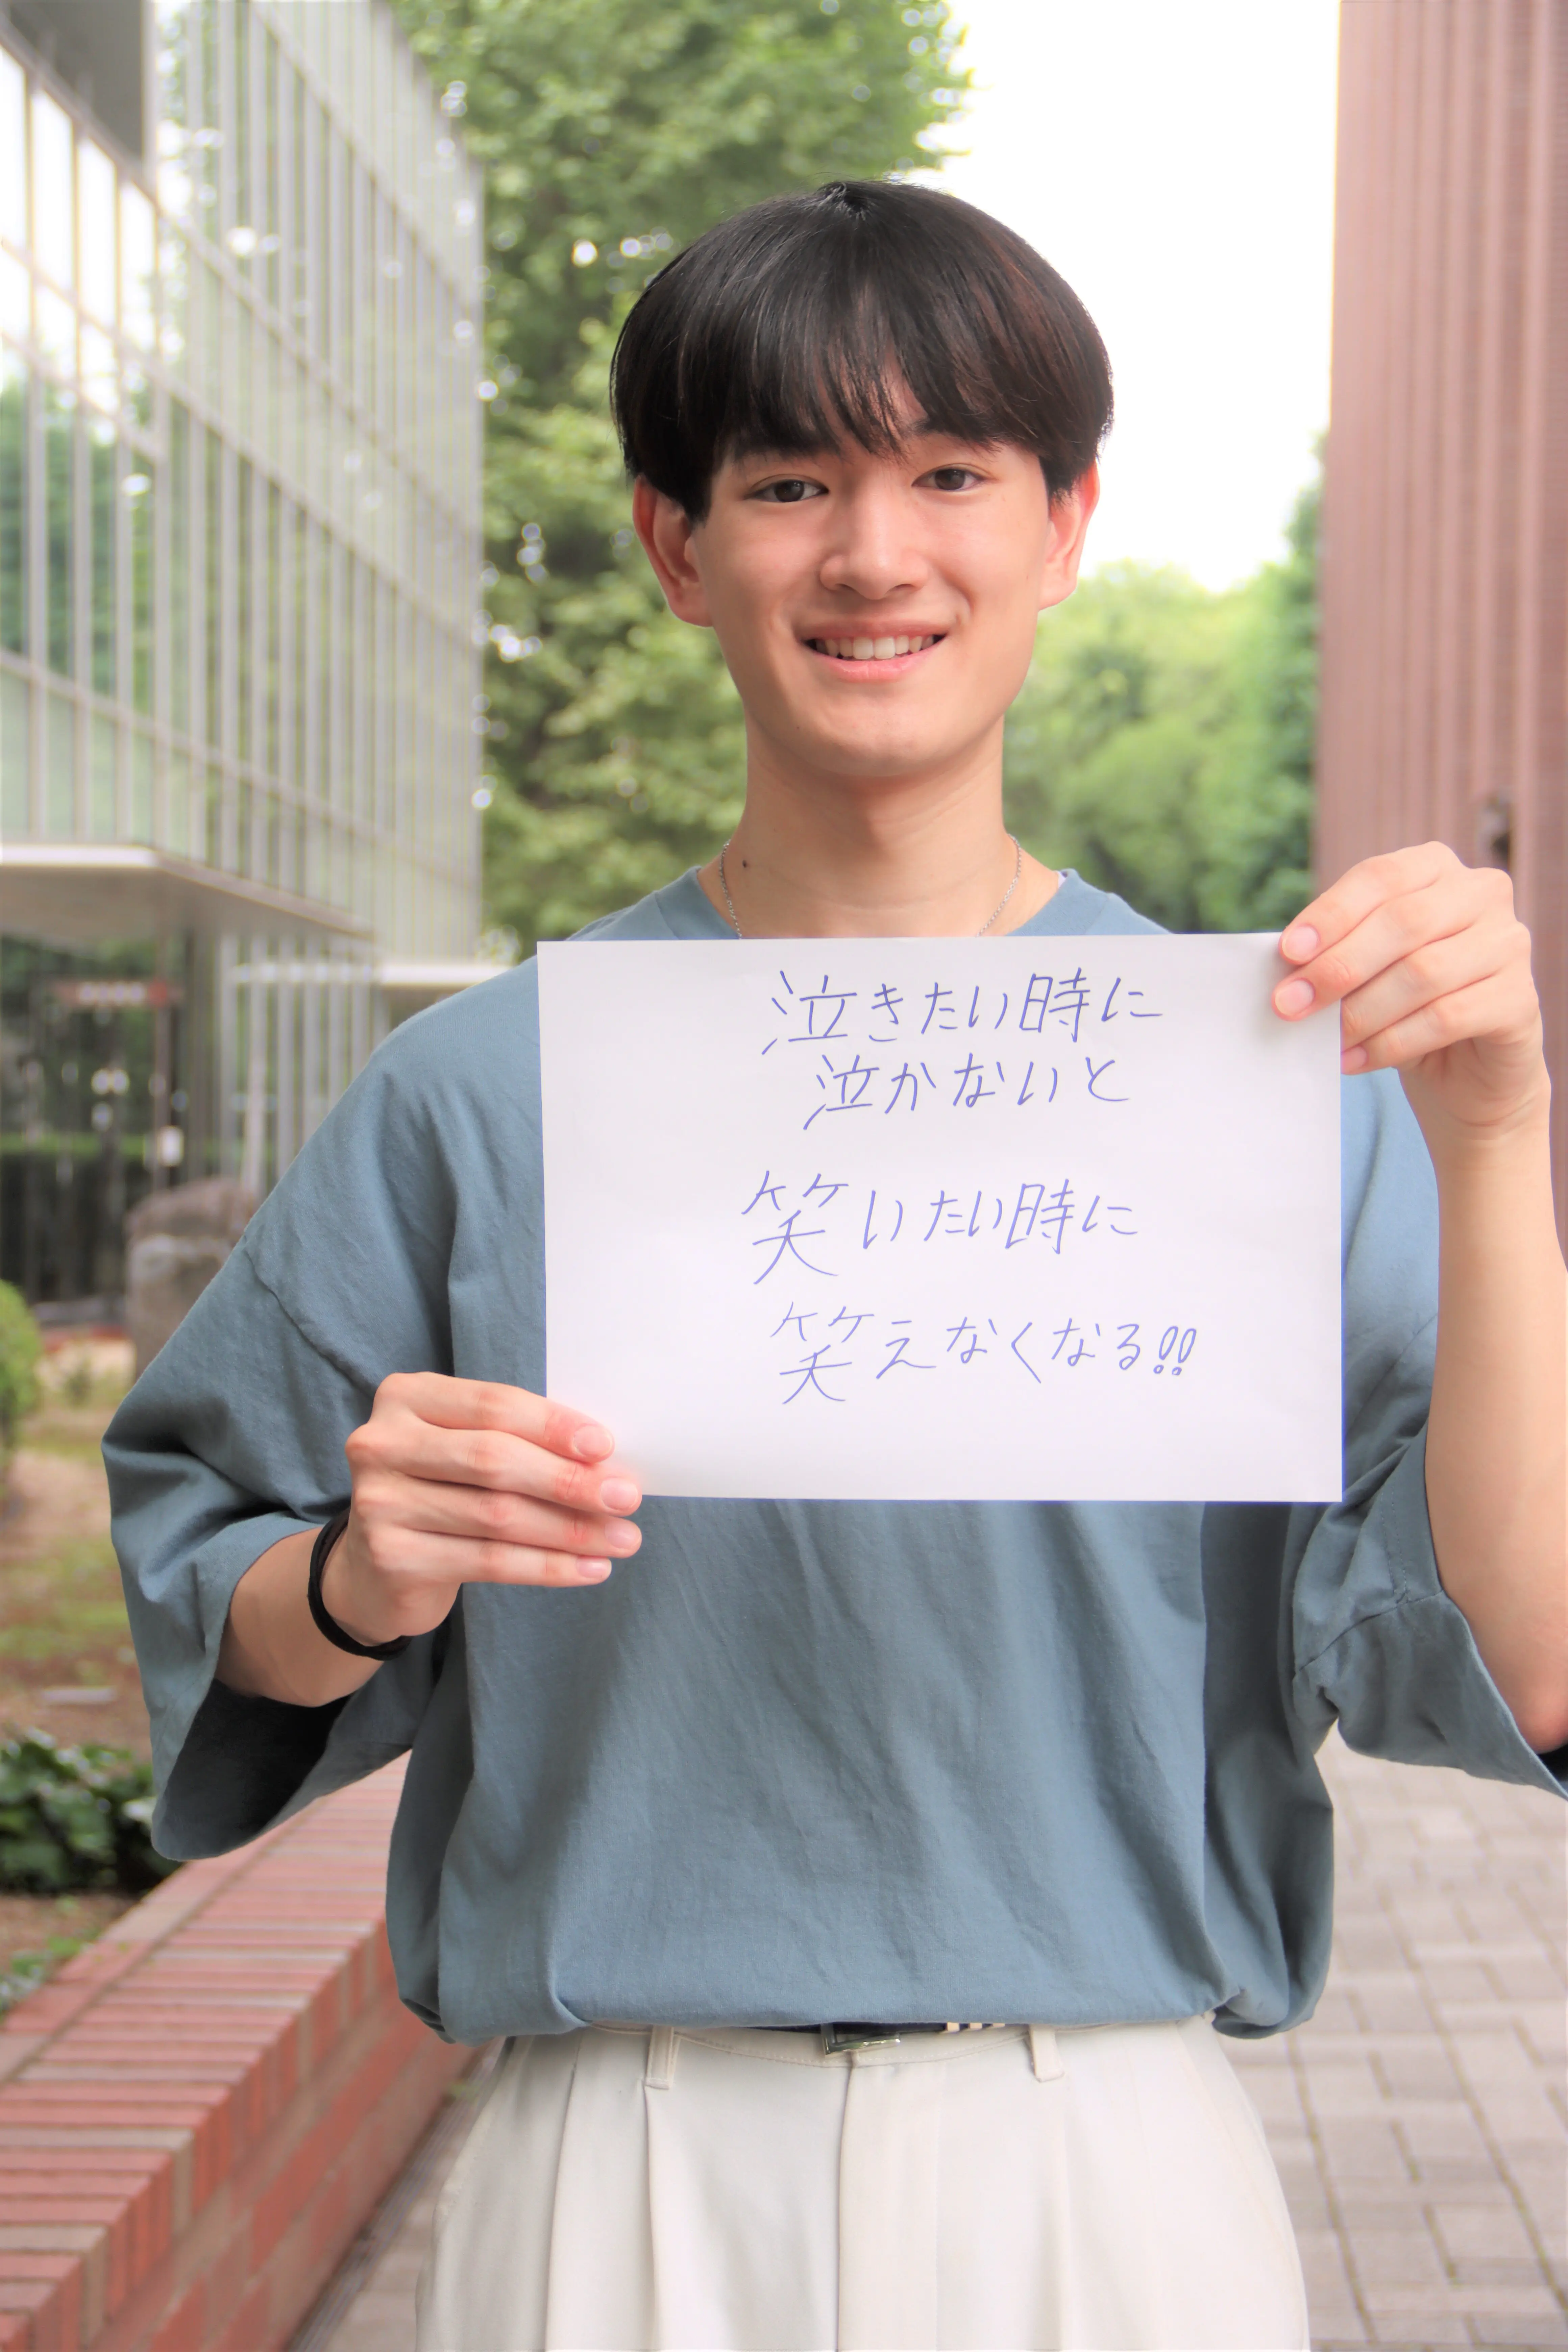 泣きたい時に
泣かないと
笑いたい時に
笑えなくなる!!